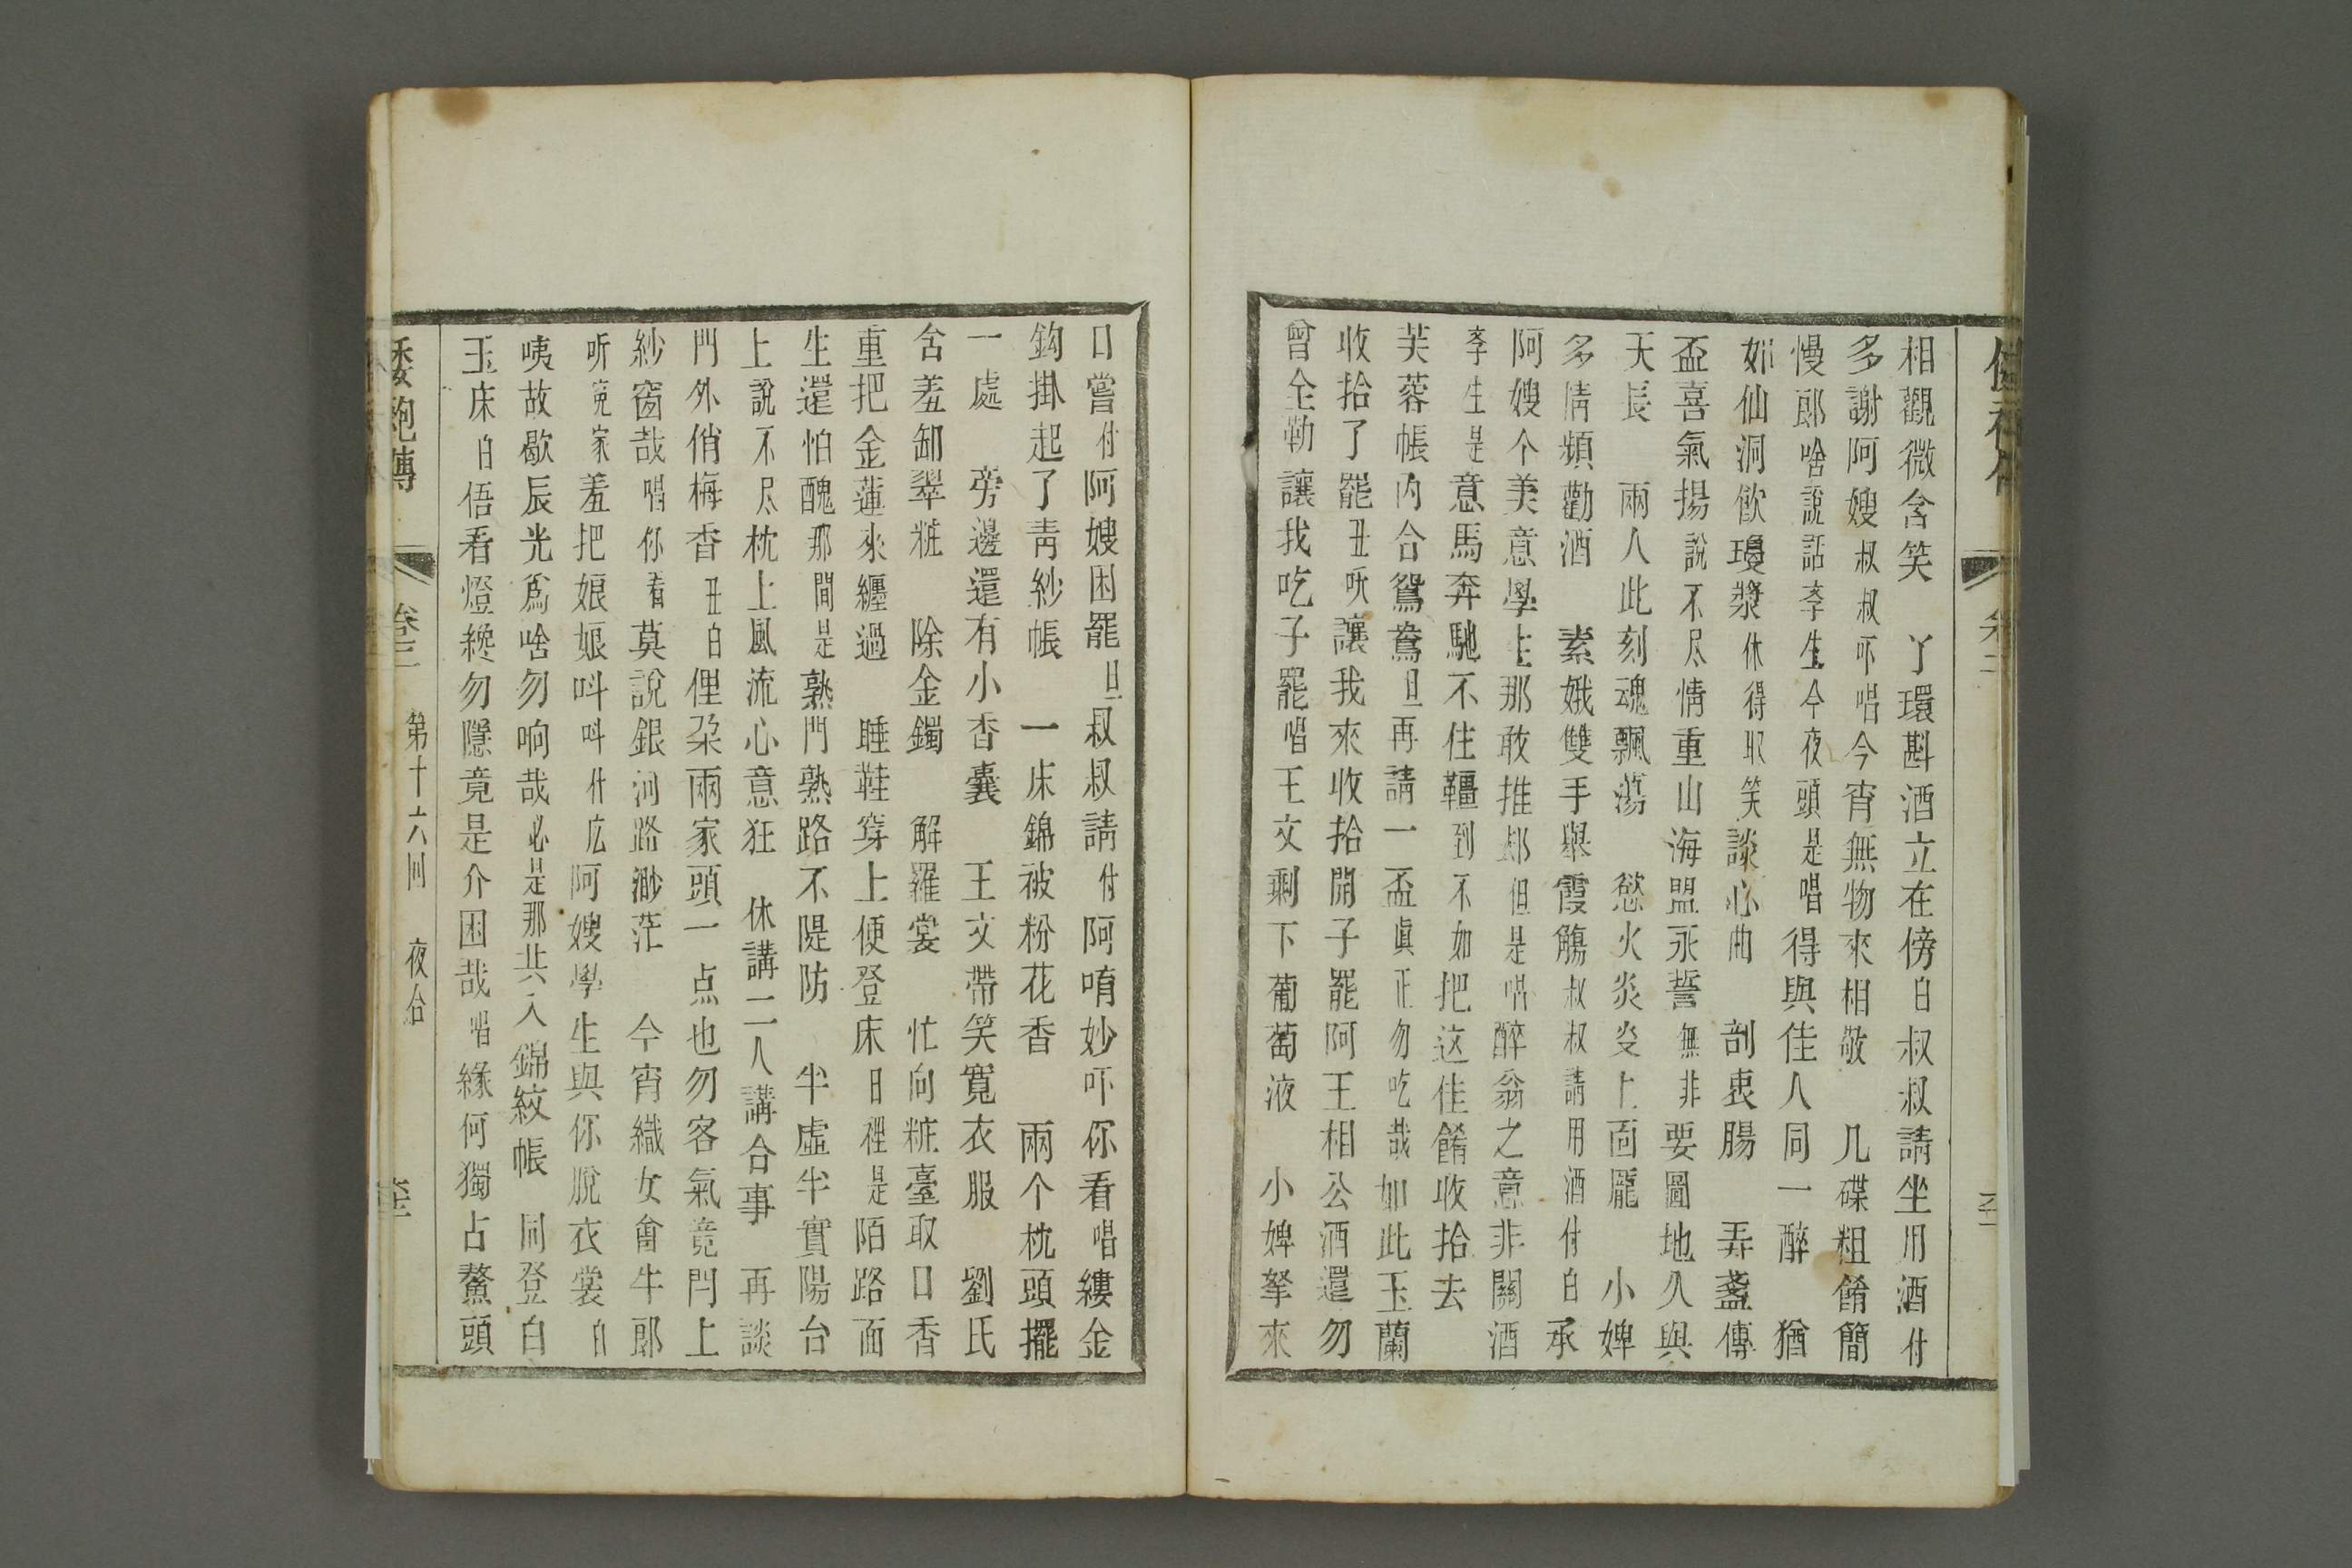 相觀微含笑　丫環斟酒立在傍白叔叔請坐用酒付
多謝阿嫂叔叔吓唱今宵無物來相敬　几碟粗餚簡
慢郎啥說話李生今夜頭是唱得與佳人同一醉　猶
如仙洞飲瓊漿休得取笑談心曲　剖衷腸　弄盞傳
盃喜氣揚說不尽情重山海盟永誓無非要圖地久與
天長　兩人此刻魂飄蕩　慾火炎炎上面龐　小婢
多情頻勸酒　素娥雙手舉霞觴叔叔請用酒付白承
阿嫂个美意學生那敢推却但是唱醉翁之意非關酒
李生是意馬奔馳不住韁到不如把这佳餚收拾去
芙蓉帳內合鴛鴦旦再請一盃眞正勿吃哉如此玉蘭
收拾了罷丑吷讓我來收拾開子罷阿王相公酒還勿
曾全勒讓我吃子罷唱王文剩下葡萄液　小婢拏來
口嘗付阿嫂困罷旦叔叔請付阿唷妙吓你看唱縷金
鈎掛起了靑紗帳　一床錦被粉花香　兩个枕頭擺
一處　旁邊還有小香囊　王文帶笑寬衣服　劉氏
含羞卸翠粧　除金鐲　解羅裳　忙向粧臺取口香
重把金蓮來纏過　睡鞋穿上便登床日裡是陌路面
生還怕醜那間是熟門熟路不隄防　半虛半實陽台
上說不尽枕上風流心意狂　休講二人講合事　再談
門外俏梅香丑白俚朶兩家頭一点也勿客氣竟閂上
紗窗哉唱你看莫說銀河路渺茫　今宵織女會牛郎
听寃家羞把娘娘呌呌什庅阿嫂學生與你脫衣裳白
咦故歇辰光爲啥勿响哉必是那共入錦紋帳　同登白
玉床白俉看燈纔勿隱竟是介困哉唱緣何獨占鰲頭
倭袍傳　卷三　第十六回　夜合